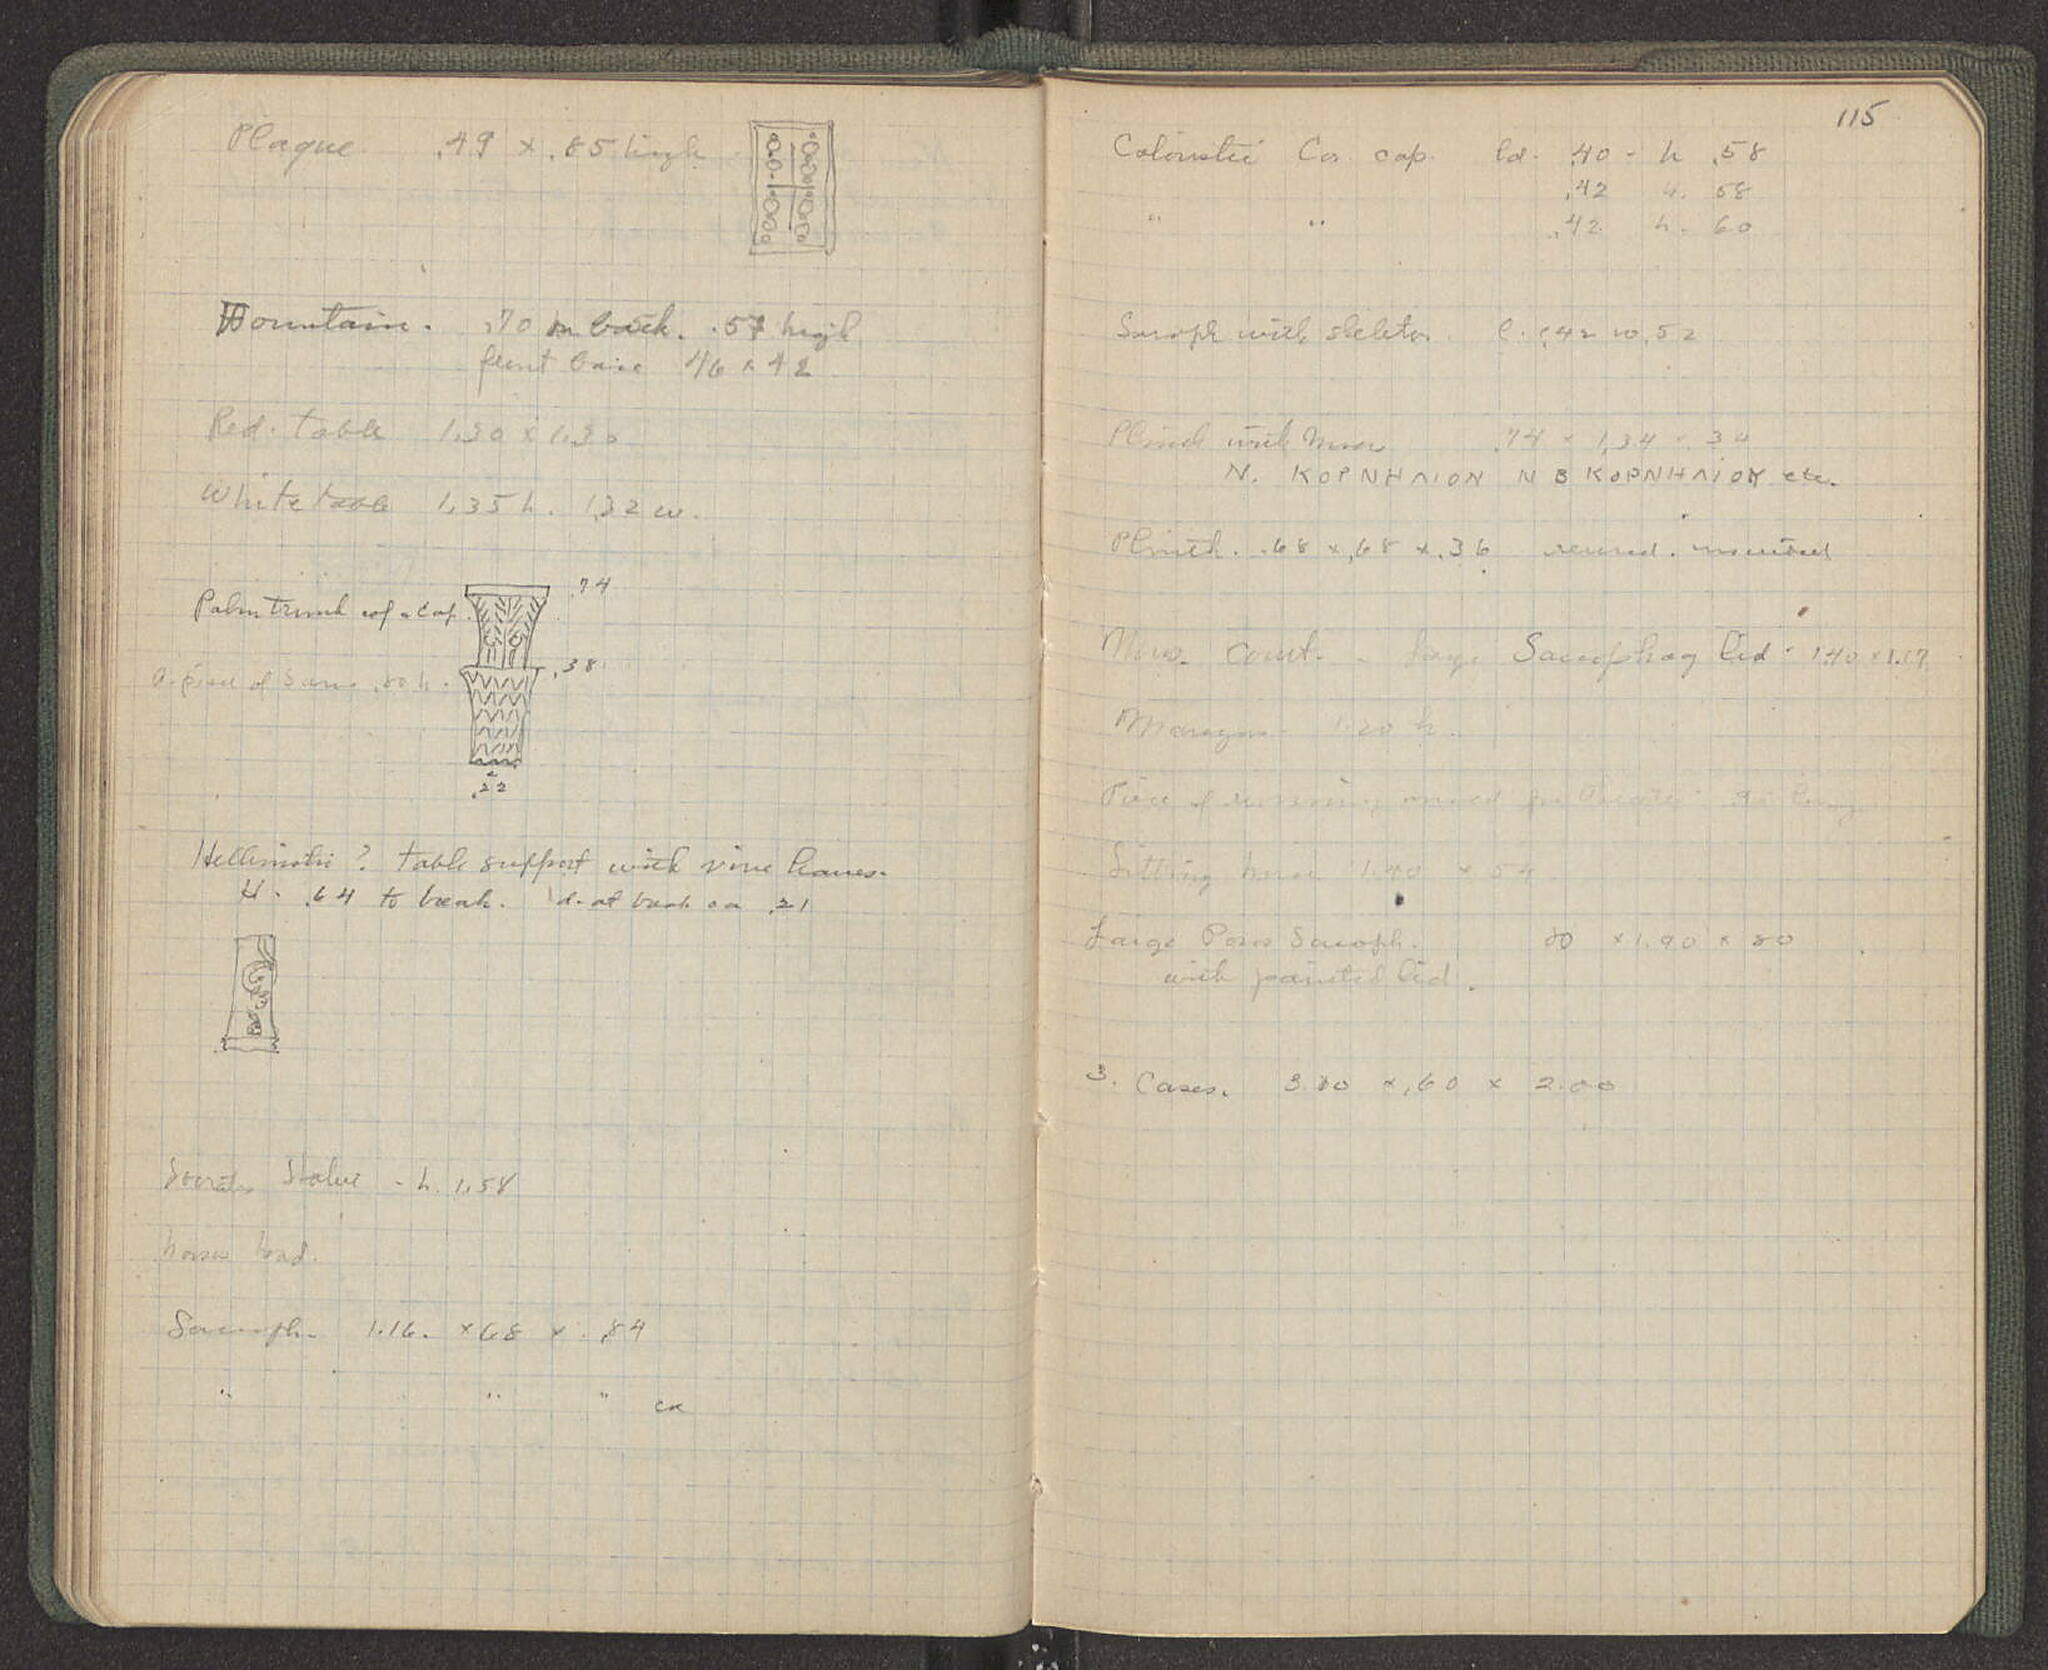 Plaque .49 x .85 high
Fountain. .70 on back. .57 high
front base 46 x 42
Red. table 1,30 x 1,30
White table 1,35 h. 1,32 w.
Palm trunk col & cap. .74
a. piece of same .80 h. .38
.22
Hellinistic ? Table support with vine leaves.
H. .64 to break. d. at back ca .21
Statue - h. 1,58
horses head.
Sarcoph. 1.16. x 68 x .84
" " " ca
115
Cor. cap. ld. .40 - h .58
.42 h. 58
" " .42 h. 60
Sarcoph with skeleton l. 42 w. 52
Plinth with .74 x 1,34 x 34
N. ΚΟΡΝΗΛΙΟΝ Ν Β ΚΟΡΝΗΛΙΟΥ etc.
Plinth. .68 x .68 x .36
Mus. Court. - large Sarcophag lid. 1.40 x 1.17
1.20 h.
Piece of long
Sitting 1.40 x 54
Large Poros Sarcoph. 80 x 1.90 x 80
with painted lid.
3. Cases. 3.00 x .60 x 2.00